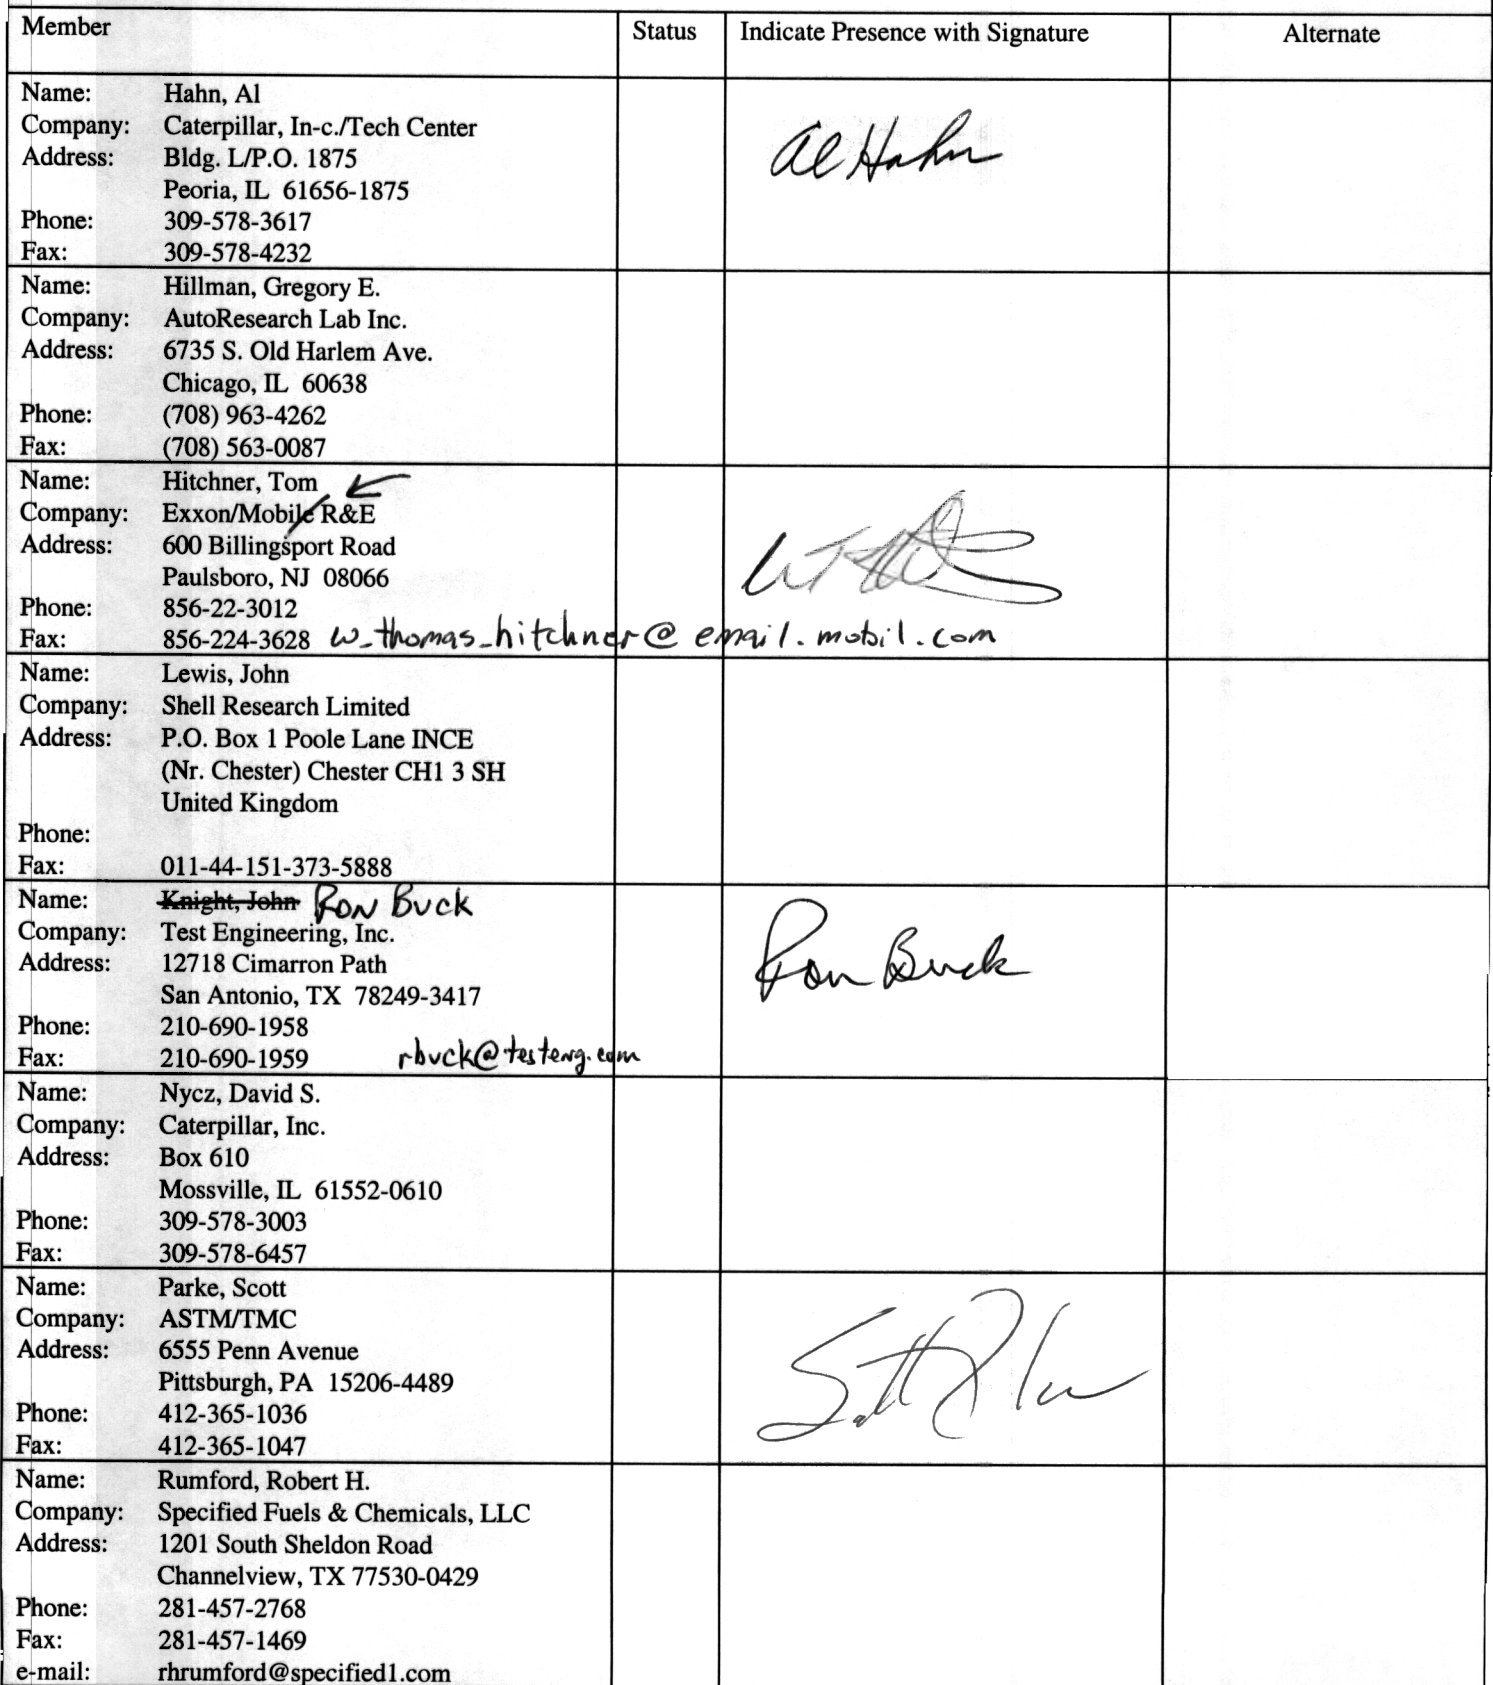 Member Status Indicate Presence with Signature Alternate
Name: Hahn, Al
Company: Caterpillar, In-c./Tech Center
Address: Bldg. L/P.O. 1875
Al Hahn
Peoria, IL 61656-1875
Phone: 309-578-3617
Fax: 309-578-4232
Name: Hillman, Gregory E.
Company: AutoResearch Lab Inc.
Address: 6735 S. Old Harlem Ave.
Chicago, IL 60638
Phone: (708) 963-4262
Fax: (708) 563-0087
Name: Hitchner, Tom
Company: Exxon/Mobile R&E
Address: 600 Billingsport Road
Paulsboro, NJ 08066
Phone: 856-22-3012
Fax: 856-224-3628 w_thomas_hitchner@email.mobil.com
Name: Lewis, John
Company: Shell Research Limited
Address: P.O. Box 1 Poole Lane INCE
(Nr. Chester) Chester CH1 3 SH
United Kingdom
Phone:
Fax: 011-44-151-373-5888
Name: Knight, John Ron Buck
Company: Test Engineering, Inc.
Address: 12718 Cimarron Path
Ron Buck
San Antonio, TX 78249-3417
Phone: 210-690-1958
Fax: 210-690-1959 rbuck@testeng.com
Name: Nycz, David S.
Company: Caterpillar, Inc.
Address: Box 610
Mossville, IL 61552-0610
Phone: 309-578-3003
Fax: 309-578-6457
Name: Parke, Scott
Company: ASTM/TMC
Address: 6555 Penn Avenue
Pittsburgh, PA 15206-4489
Phone: 412-365-1036
Fax: 412-365-1047
Name: Rumford, Robert H.
Company: Specified Fuels & Chemicals, LLC
Address: 1201 South Sheldon Road
Channelview, TX 77530-0429
Phone: 281-457-2768
Fax: 281-457-1469
e-mail: rhrumford@specified1.com